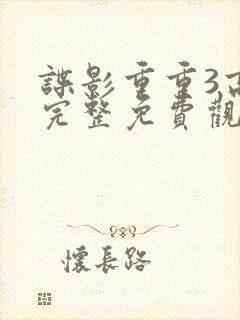 諜影重重3,高
完整免費觀
懷長路